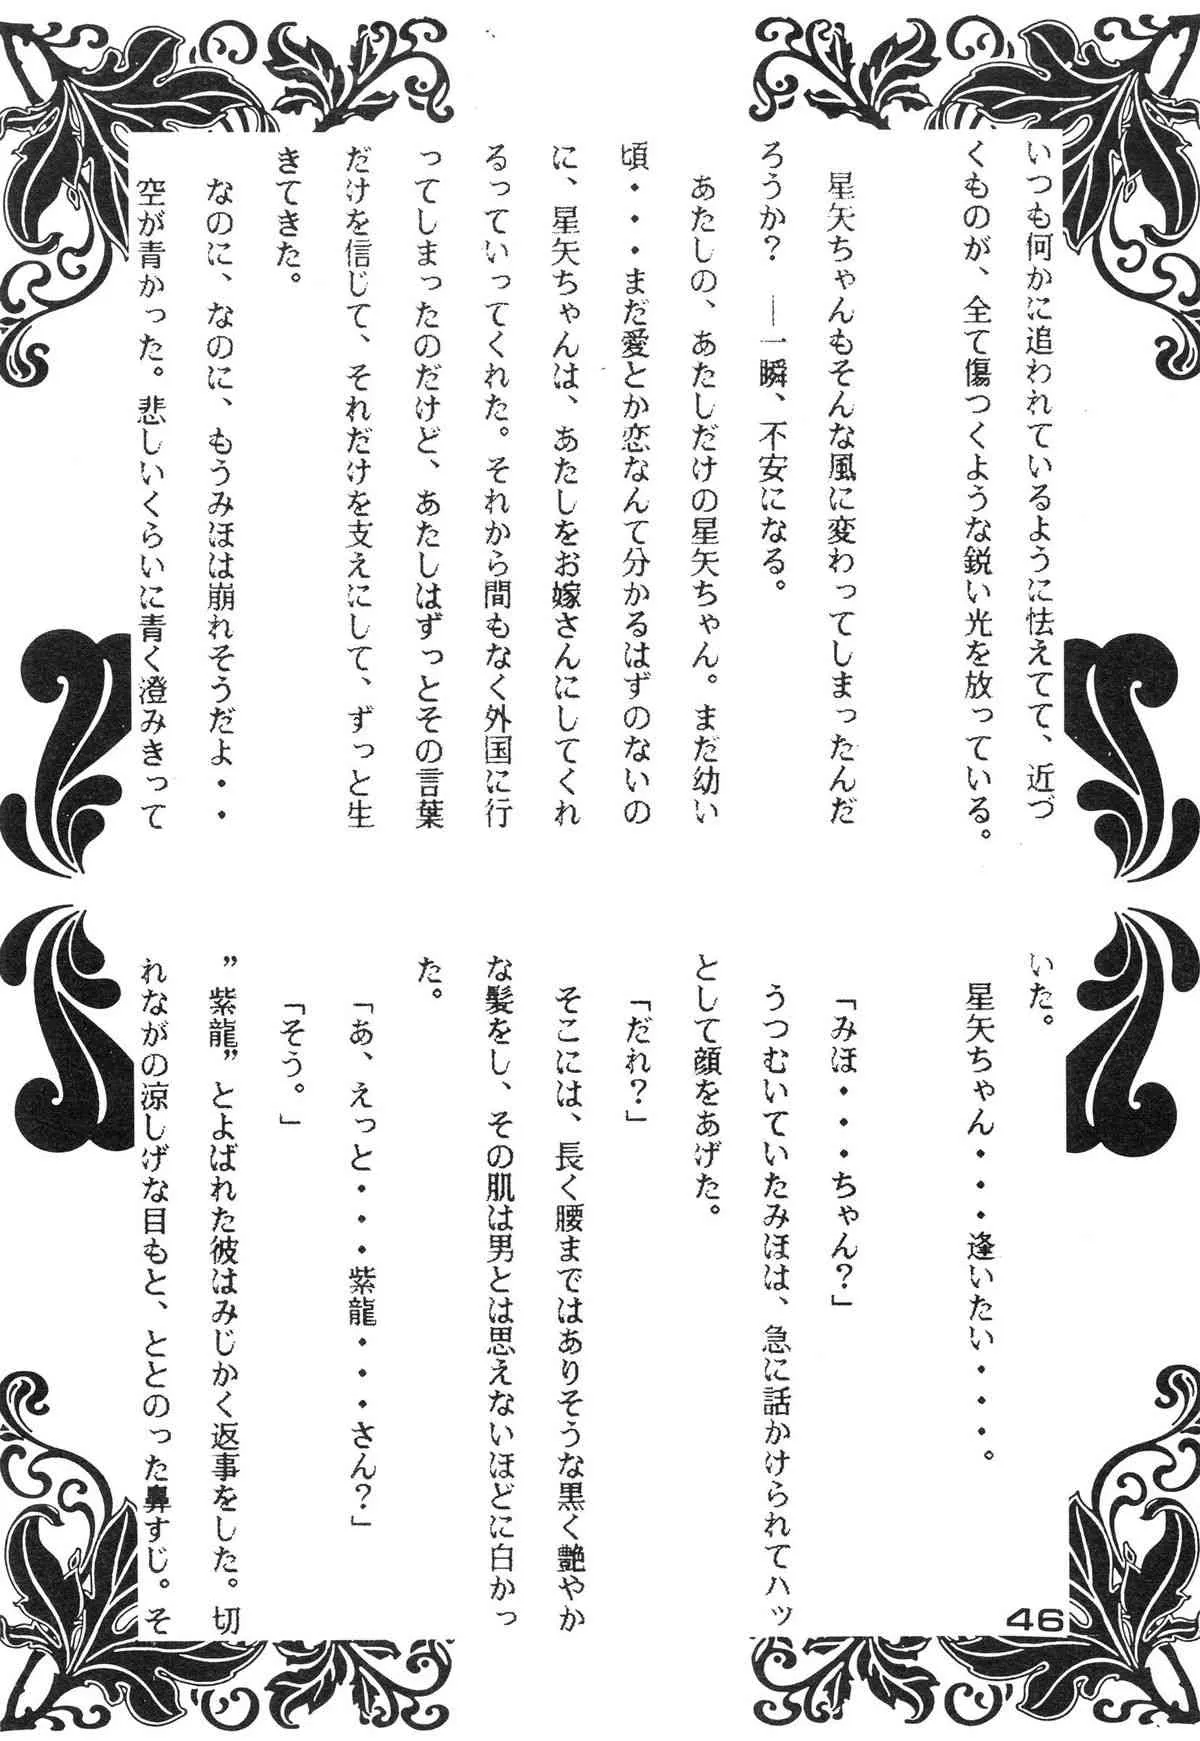 いつも何かに追われているように怯えてて、近づ
くものが、全て傷つくような鋭い光を放っている。
星矢ちゃんもそんな風に変わってしまったんだ
ろうか？　―一瞬、不安になる。
あたしの、あたしだけの星矢ちゃん。まだ幼い
頃・・・まだ愛とか恋なんて分かるはずのないの
に、星矢ちゃんは、あたしをお嫁さんにしてくれ
るっていってくれた。それから間もなく外国に行
ってしまったのだけど、あたしはずっとその言葉
だけを信じて、それだけを支えにして、ずっと生
きてきた。
なのに、なのに、もうみほは崩れそうだよ・・
空が青かった。悲しいくらいに青く澄みきって
いた。
星矢ちゃん・・・逢いたい・・・。
「みほ・・・ちゃん？」
うつむいていたみほは、急に話かけられてハッ
として顔をあげた。
「だれ？」
そこには、長く腰まではありそうな黒く艶やか
な髪をし、その肌は男とは思えないほどに白かっ
た。
「あ、えっと・・・紫龍・・・さん？」
「そう。」
”紫龍”とよばれた彼はみじかく返事をした。切
れながの涼しげな目もと、ととのった鼻すじ。そ
46